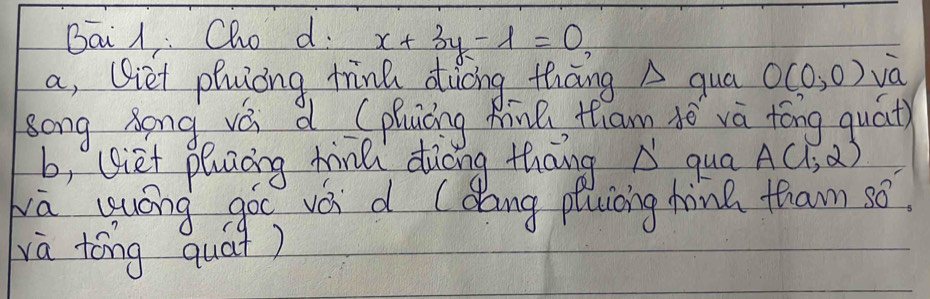 Bài 1: Cho d: x + 3y - 1 = 0
a, Viết phương trình đường thẳng Δ qua O(0;0) và
song song với d (phương trình tham số và tổng quát)
b, Viết phương trình đường thẳng Δ' qua A(1;2)
và vuông góc với d (dạng phương trình tham số
và tổng quát)